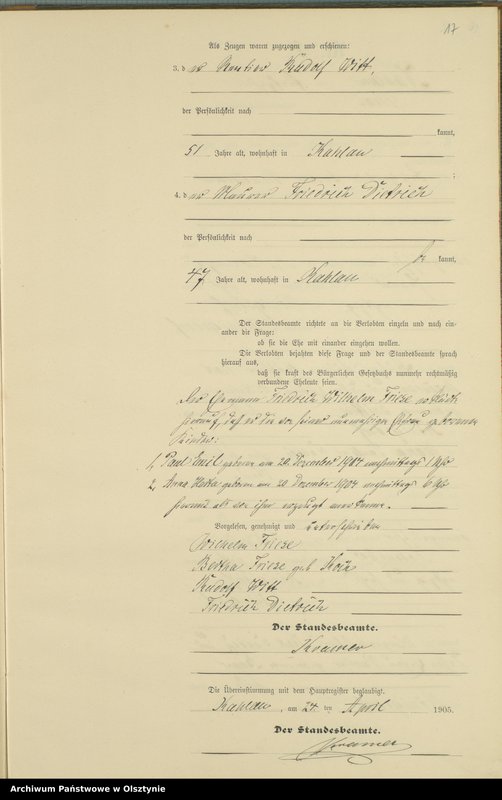 17
Als Zeugen waren zugezogen und erschienen:
3. der Rentier Rudolf Witt,
der Persönlichkeit nach
kannt,
51 Jahre alt, wohnhaft in Kahlau
4. der Maurer Friedrich Dietrich
der Persönlichkeit nach
be kannt,
47 Jahre alt, wohnhaft in Kahlau
Der Standesbeamte richtete an die Verlobten einzeln und nach ein-
ander die Frage:
ob sie die Ehe mit einander eingehen wollen.
Die Verlobten bejahten diese Frage und der Standesbeamte sprach
hierauf aus,
daß sie kraft des Bürgerlichen Gesetzbuchs nunmehr rechtmäßig
verbundene Eheleute seien.
Der Ehemann Friedrich Wilhelm Friese erklärte
hierauf, daß er die von seiner nunmehrigen Ehefrau geborenen
Kinder:
1, Paul Emil geboren am 20. Dezember 1904 nachmittags 1 Uhr
2, Anna Herta geboren am 20. Dezember 1904 nachmittags 6 Uhr
hiermit als von ihm erzeugt anerkenne.
Vorgelesen, genehmigt und unterschrieben
Wilhelm Friese
Bertha Friese geb.
Rudolf Witt
Friedrich Dietrich
Der Standesbeamte.
Kramer
Die Übereinstimmung mit dem Hauptregister beglaubigt.
Kahlau, am 24. ten April 1905.
Der Standesbeamte.
Kramer
Archiwum Państwowe w Olsztynie